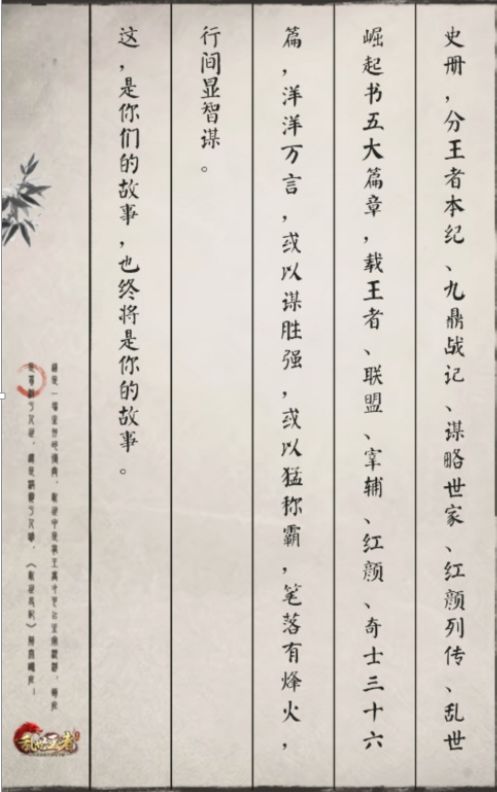 史册，分王者本纪、九鼎战记、谋略世家、红颜列传、乱世
崛起书五大篇章，载王者、联盟、宰辅、红颜、奇士三十六
篇，洋洋万言，或以谋胜强，或以猛称霸，笔落有烽火，
行间显智谋。
这，是你们的故事，也终将是你的故事。
乱世王者